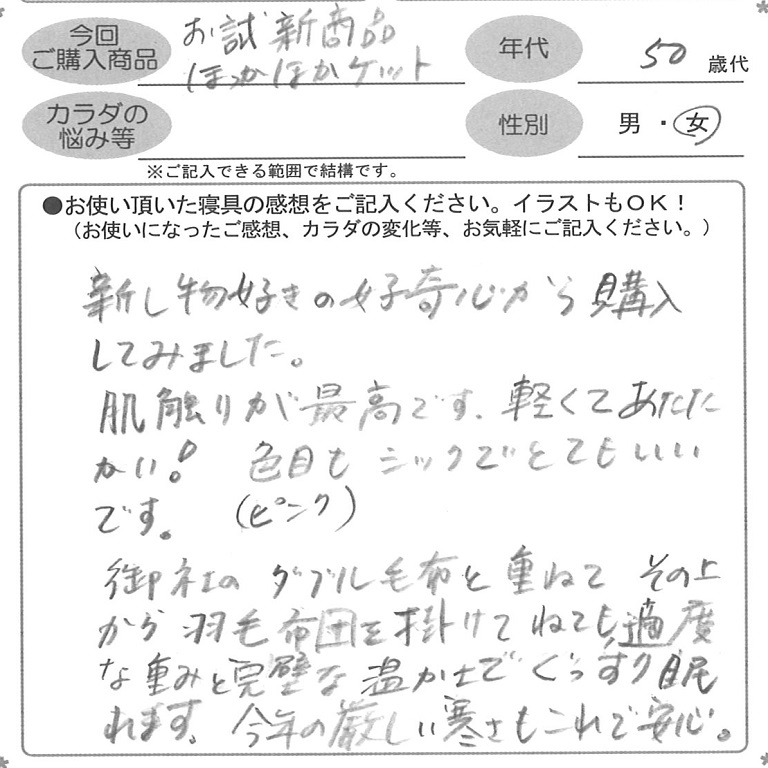 今回
ご購入商品
お試新商品
ほっかほかケット
年代
50 歳代
カラダの
悩み等
性別
男・女
※ご記入できる範囲で結構です。
●お使い頂いた寝具の感想をご記入ください。イラストもOK!
(お使いになったご感想、カラダの変化等、お気軽にご記入ください。)
新し物好きの好奇心から購入
してみました。
肌触りが最高です。軽くてあたた
かい! 色目も シックでとてもいい
です。 (ピンク)
御社の ダブル毛布と重ねて その上
から羽毛布団を掛けて ねても適度
な重みと完璧な温かさでぐっすり眠
れます。今年の厳しい寒さもこれで安心。